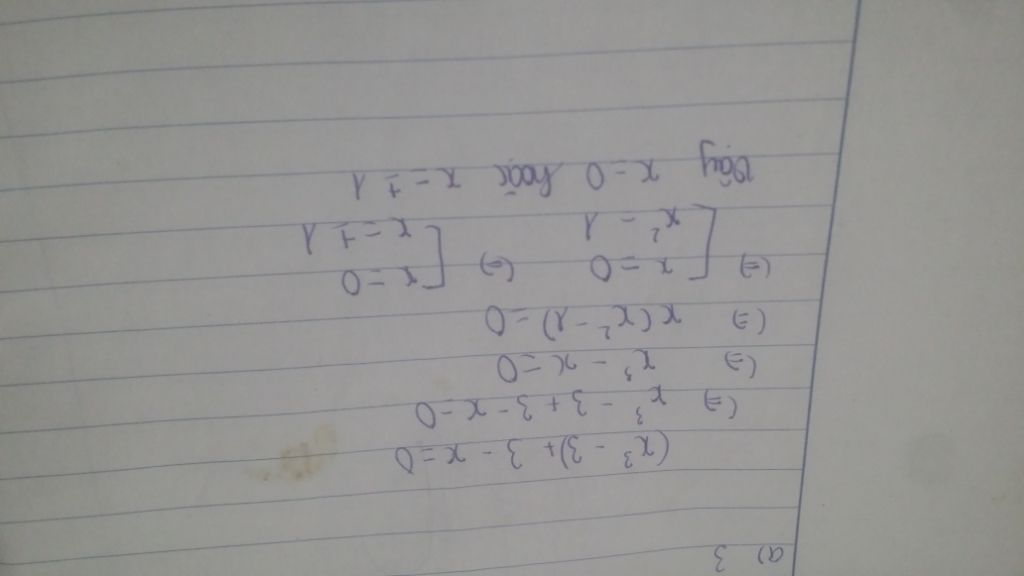 a) 3
(x³ - 3) + 3 - x = 0
(=) x³ - 3 + 3 - x = 0
(=) x³ - x = 0
(=) x(x² - 1) = 0
(=) [ x = 0 (=) [ x = 0
x² = 1 x = ± 1
Vậy x = 0 hoặc x = ± 1